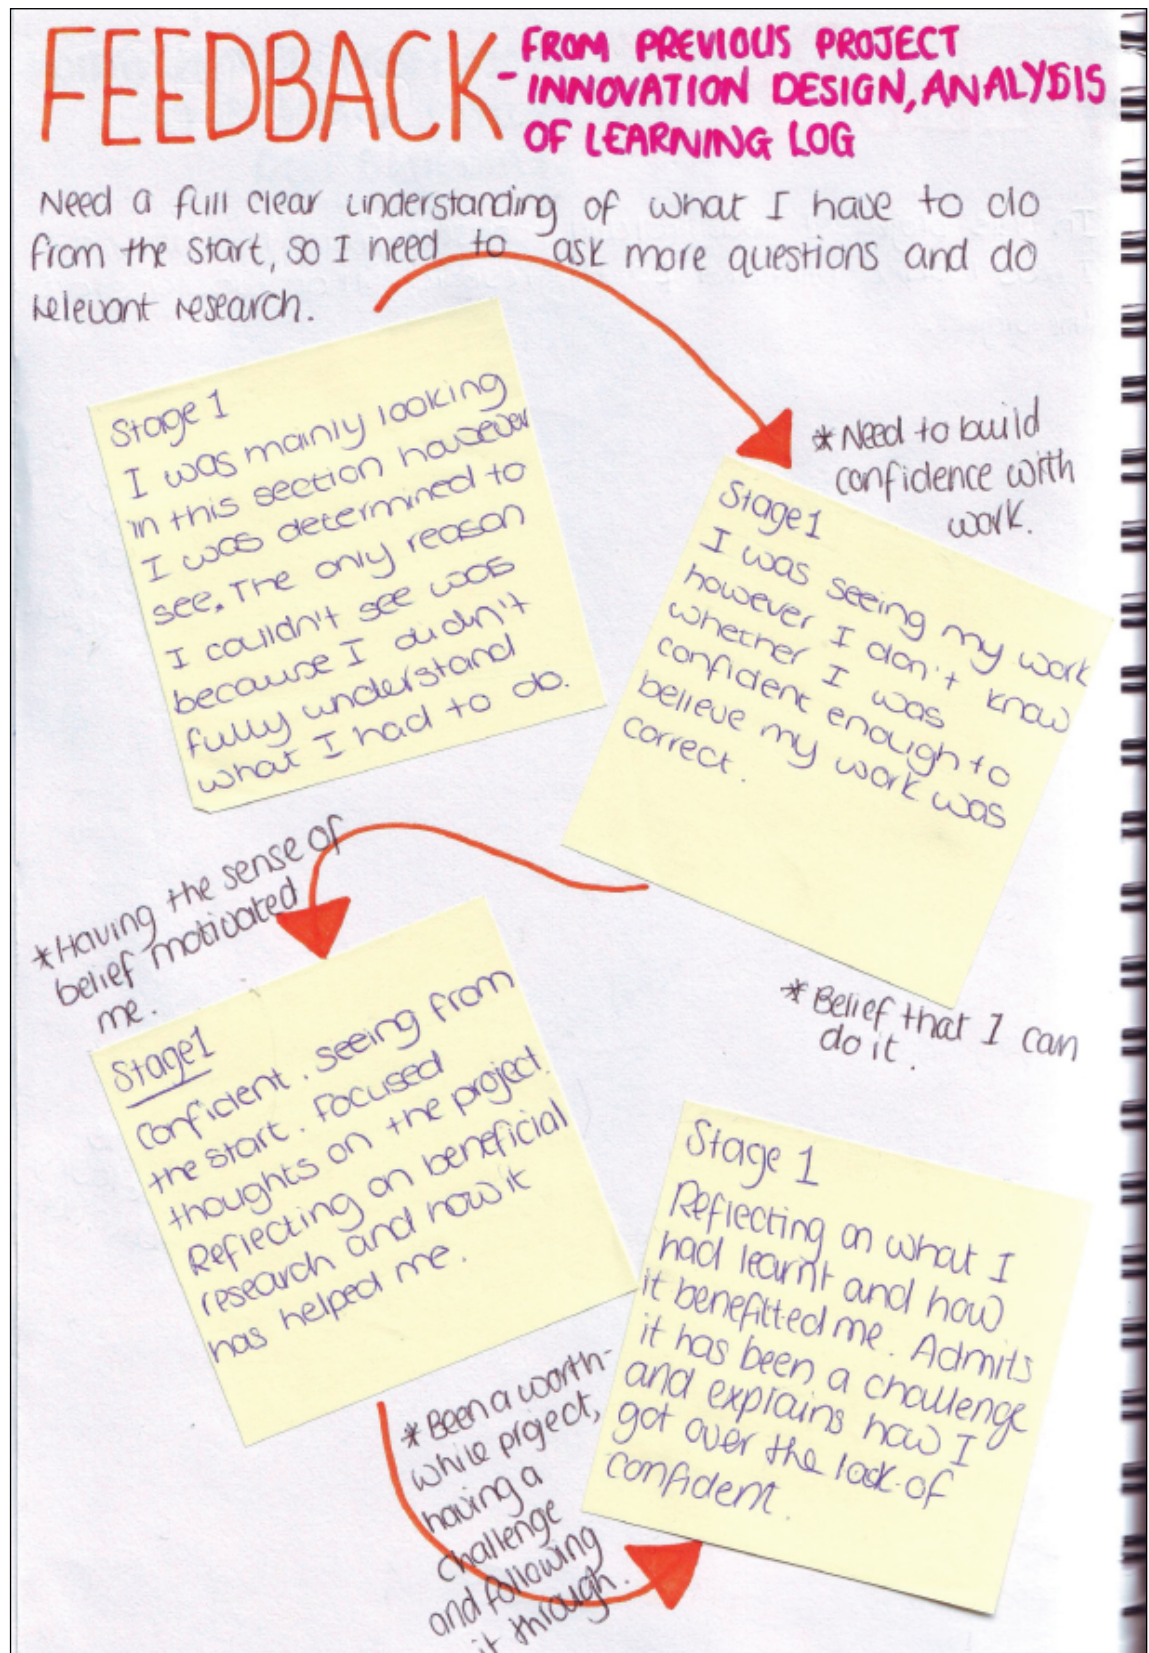 FEEDBACK - FROM PREVIOUS PROJECT
INNOVATION DESIGN, ANALYSIS
OF LEARNING LOG
Need a full clear understanding of what I have to do
from the start, so I need to ask more questions and do
relevant research.
Stage 1
I was mainly looking
in this section however
I was determined to
see. The only reason
I couldn't see was
because I didn't
fully understand
what I had to do.
* Need to build
confidence with
work.
Stage 1
I was seeing my work
however I don't know
whether I was
confident enough to
believe my work was
correct.
* Having the sense of
belief motivated
me.
* Belief that I can
do it.
Stage 1
Confident. Seeing from
the start. Focused
thoughts on the project.
Reflecting on beneficial
research and how it
has helped me.
Stage 1
Reflecting on what I
had learnt and how
it benefitted me. Admits
it has been a challenge
and explains how I
got over the lack of
confident.
* Been a worth-
while project,
having a
challenge
and following
it through.